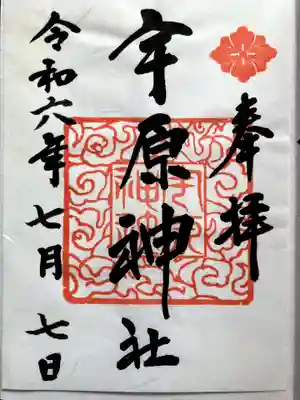 奉拝
宇原神社
令和六年七月七日